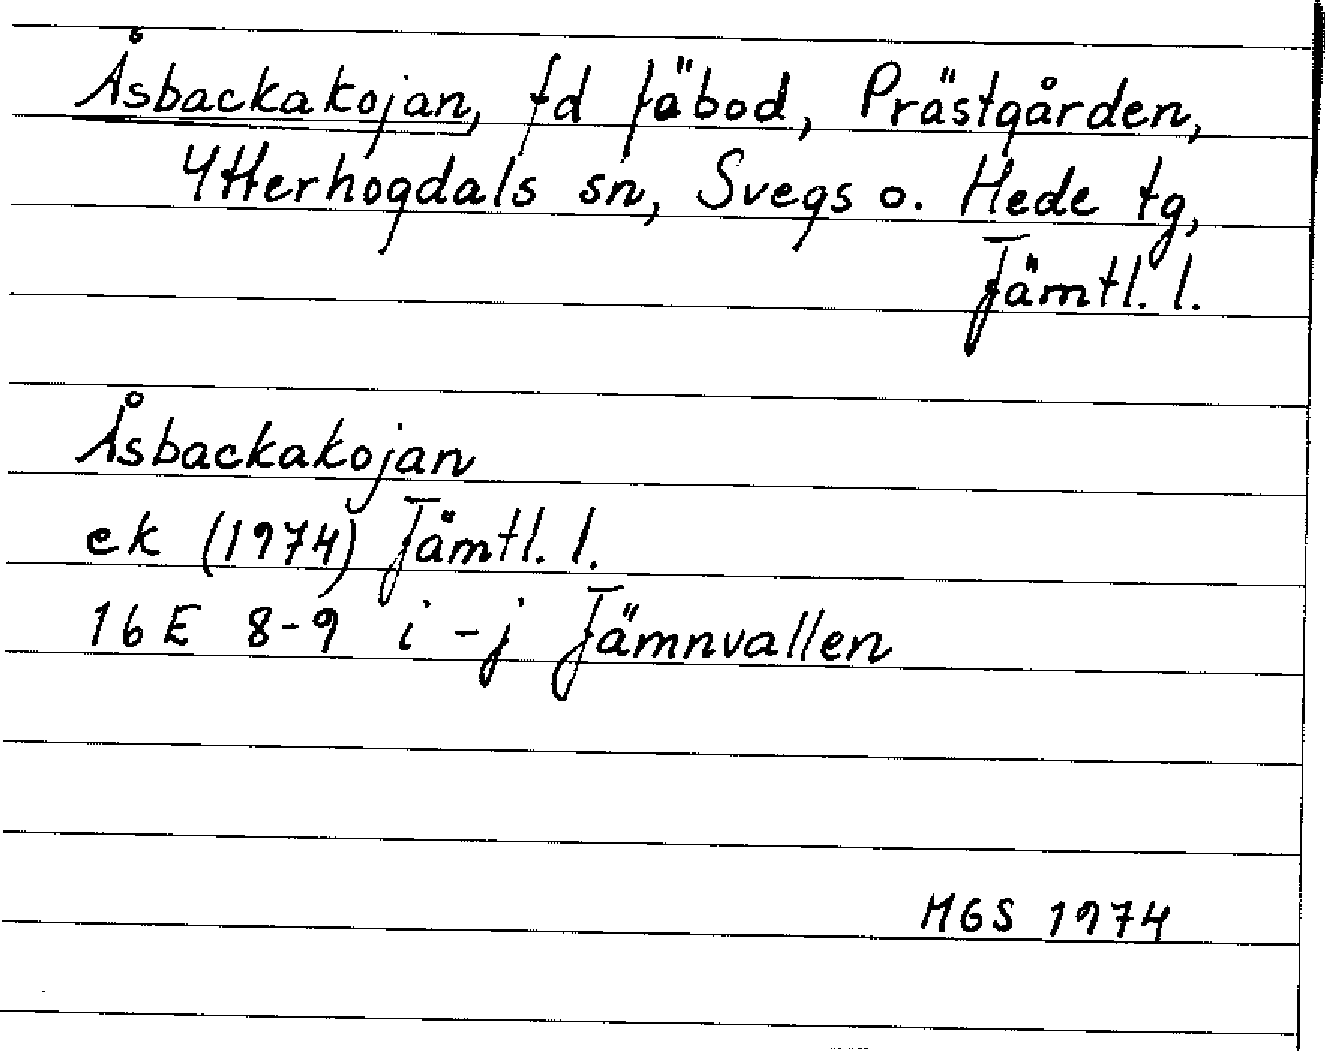 Åsbackakojan, fd fäbod, Prästgården,
Ytterhogdals sn, Svegs o. Hede tg,
Jämtl. l.
Åsbackakojan
ek (1974) Jämtl. l.
16E 8-9 i-j Jämnvallen
MGS 1974